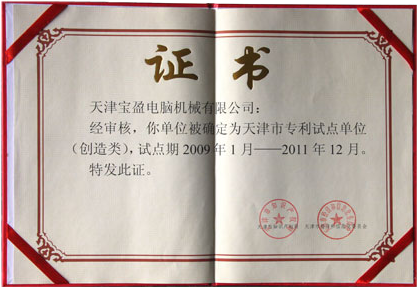 证 书
天津宝盈电脑机械有限公司:
经审核,你单位被确定为天津市专利试点单位
(创造类),试点期2009年1月——2011年12月。
特发此证。